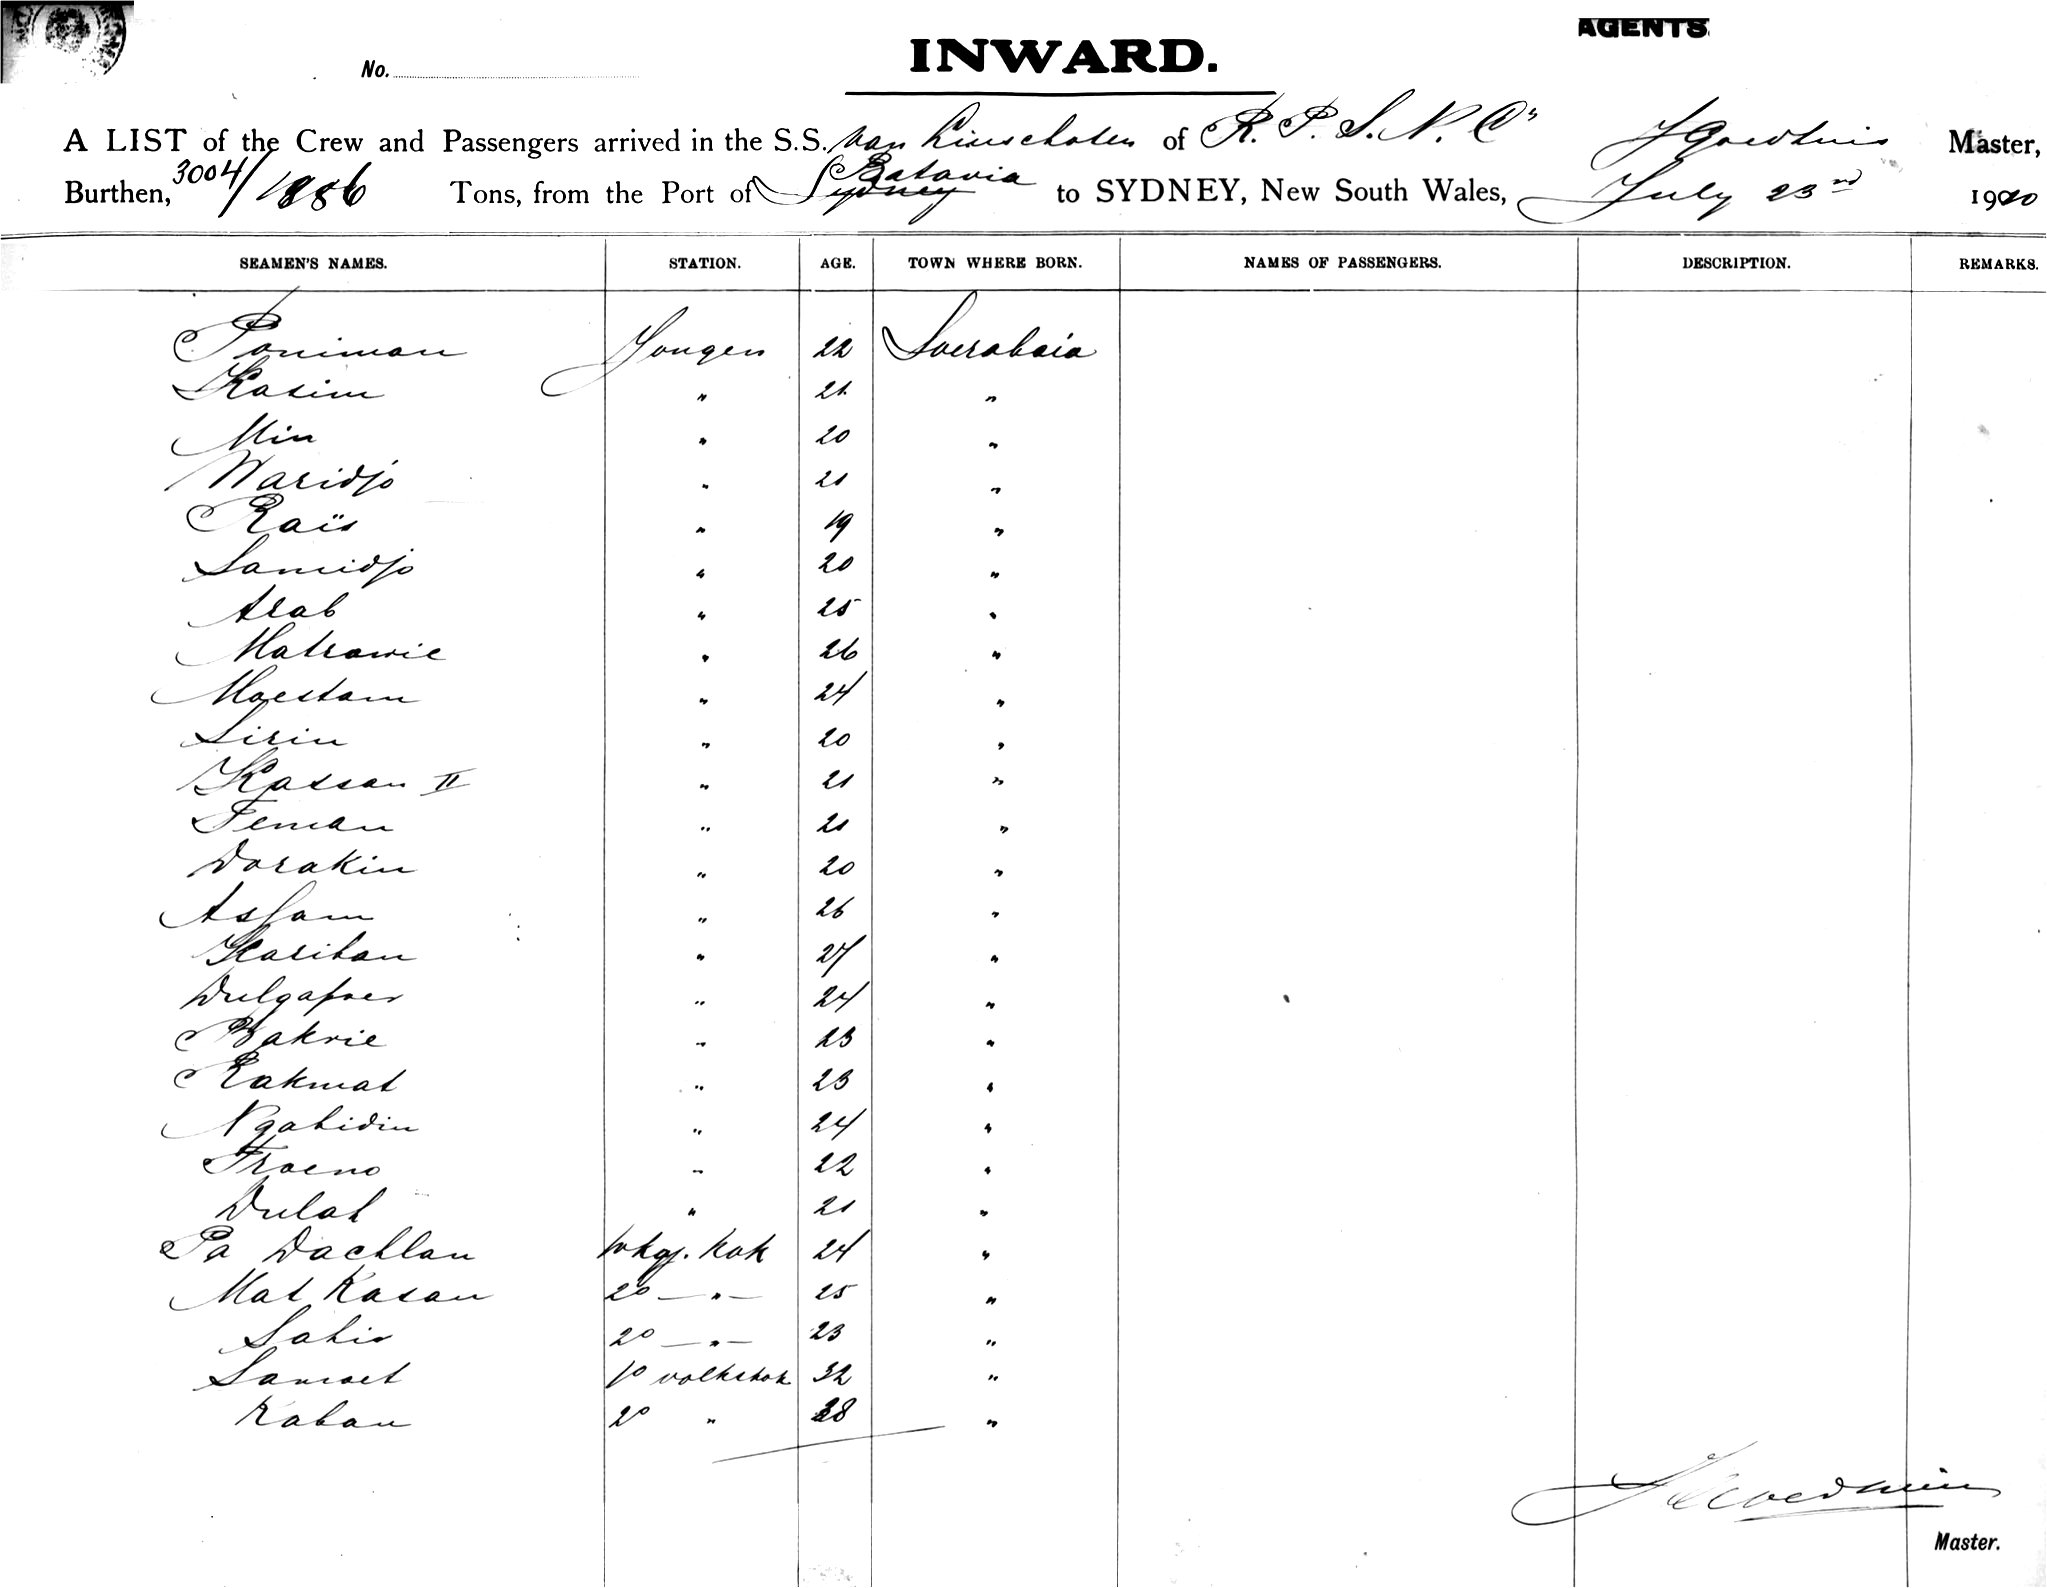 AGENTS
INWARD.
No.
A LIST of the Crew and Passengers arrived in the S.S. van Linschoten of R. P. S. N. Co J Goedhuis Master,
Burthen, 3004/1886 Tons, from the Port of Sydney Batavia to SYDNEY, New South Wales, July 23rd 1920
SEAMEN'S NAMES. STATION. AGE. TOWN WHERE BORN. NAMES OF PASSENGERS. DESCRIPTION. REMARKS.
Poniman Jongen 22 Soerabaia
Kasim " 21 "
Min " 20 "
Waridjo " 21 "
Raïs " 19 "
Samidjo " 20 "
Arab " 25 "
Matrawie " 26 "
Moestam " 24 "
Sirin " 20 "
Kassan II " 21 "
Teman " 21 "
Dorakin " 20 "
Assam " 26 "
Karitan " 27 "
Dulgapoer " 24 "
Bakrie " 23 "
Rakmat " 23 "
Ngabidin " 24 "
Troeno " 22 "
Dulah " 21 "
Pa Dachlan kok 24 "
Mat Kasan 2o — " — 25 "
Sahir 2o — " — 23 "
Samoet 1o volkskok 32 "
Kaban 2o " 28 "
J Goedhuis
Master.